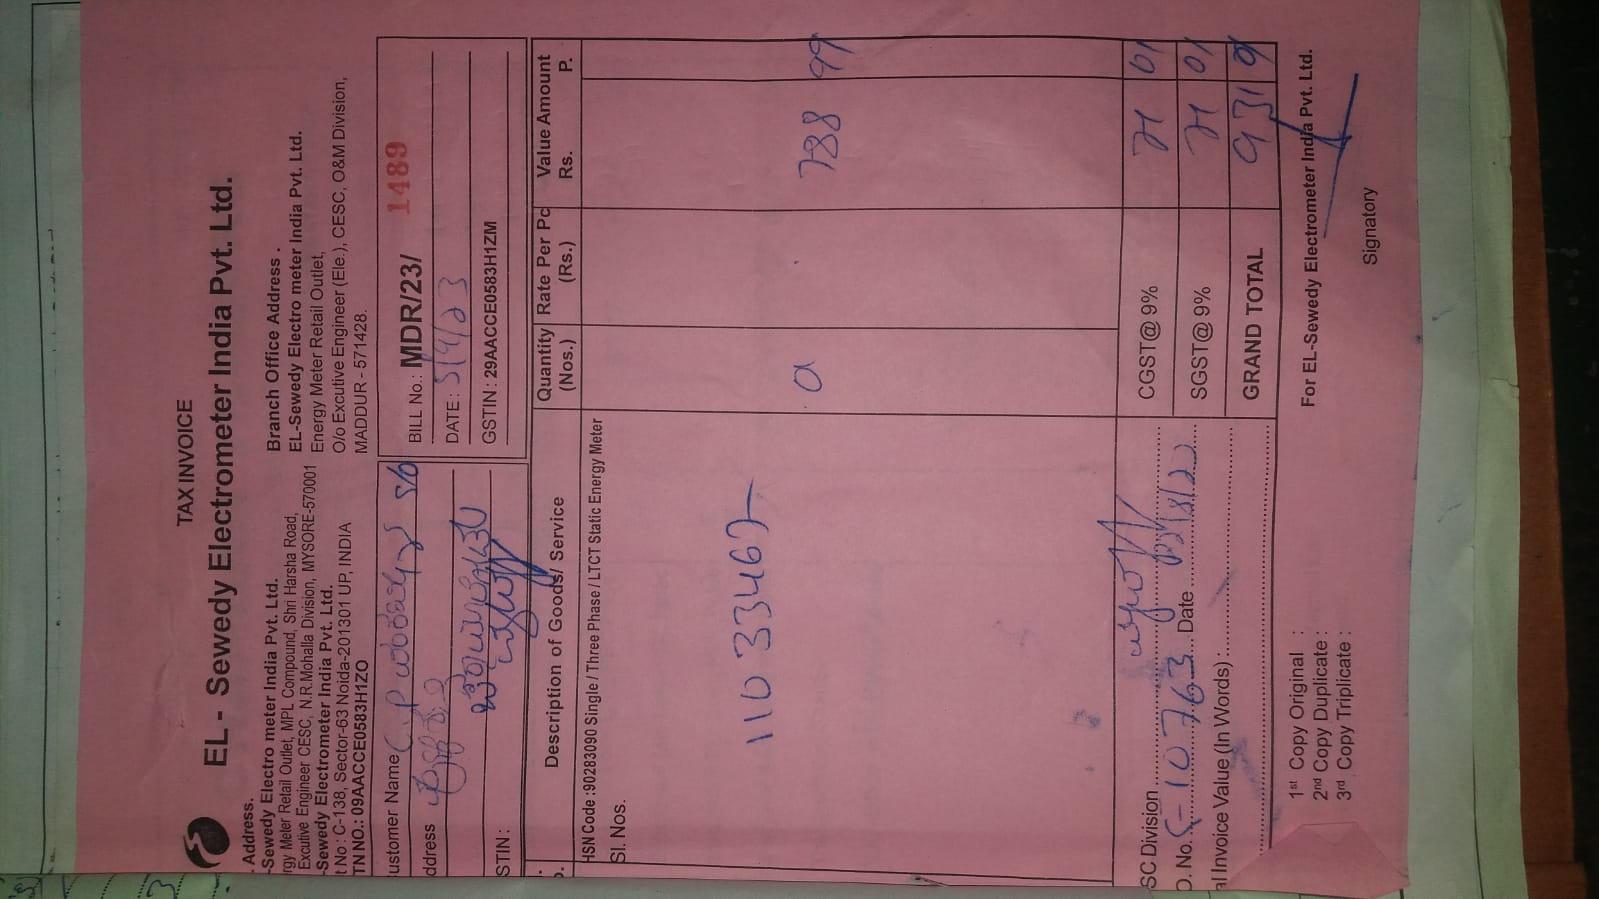 TAX INVOICE
EL - Sewedy Electrometer India Pvt. Ltd.
. Address.
-Sewedy Electro meter India Pvt. Ltd.
rgy Meter Retail Outlet, MPL Compound, Shri Harsha Road,
Excutive Engineer CESC, N.R.Mohalla Division, MYSORE-570001
-Sewedy Electrometer India Pvt. Ltd.
t No : C-138, Sector-63 Noida-201301 UP, INDIA
TN NO.: 09AACCE0583H1ZO
Branch Office Address .
EL-Sewedy Electro meter India Pvt. Ltd.
Energy Meter Retail Outlet,
O/o Excutive Engineer (Ele.), CESC, O&M Division,
MADDUR - 571428.
ustomer Name C.P
ddress
STIN :
BILL No.: MDR/23/ 1489
DATE : 5/4/23
GSTIN : 29AACCE0583H1ZM
Description of Goods/ Service Quantity (Nos.) Rate Per Pc (Rs.) Value Amount Rs. P.
HSN Code :90283090 Single / Three Phase / LTCT Static Energy Meter
Sl. Nos.
11033462
788 99
SC Division
O. No. 5-10763 Date
al Invoice Value (In Words) :
CGST@ 9% 71 01
SGST@ 9% 71 01
GRAND TOTAL 931 01
For EL-Sewedy Electrometer India Pvt. Ltd.
Signatory
1st Copy Original :
2nd Copy Duplicate :
3rd Copy Triplicate :